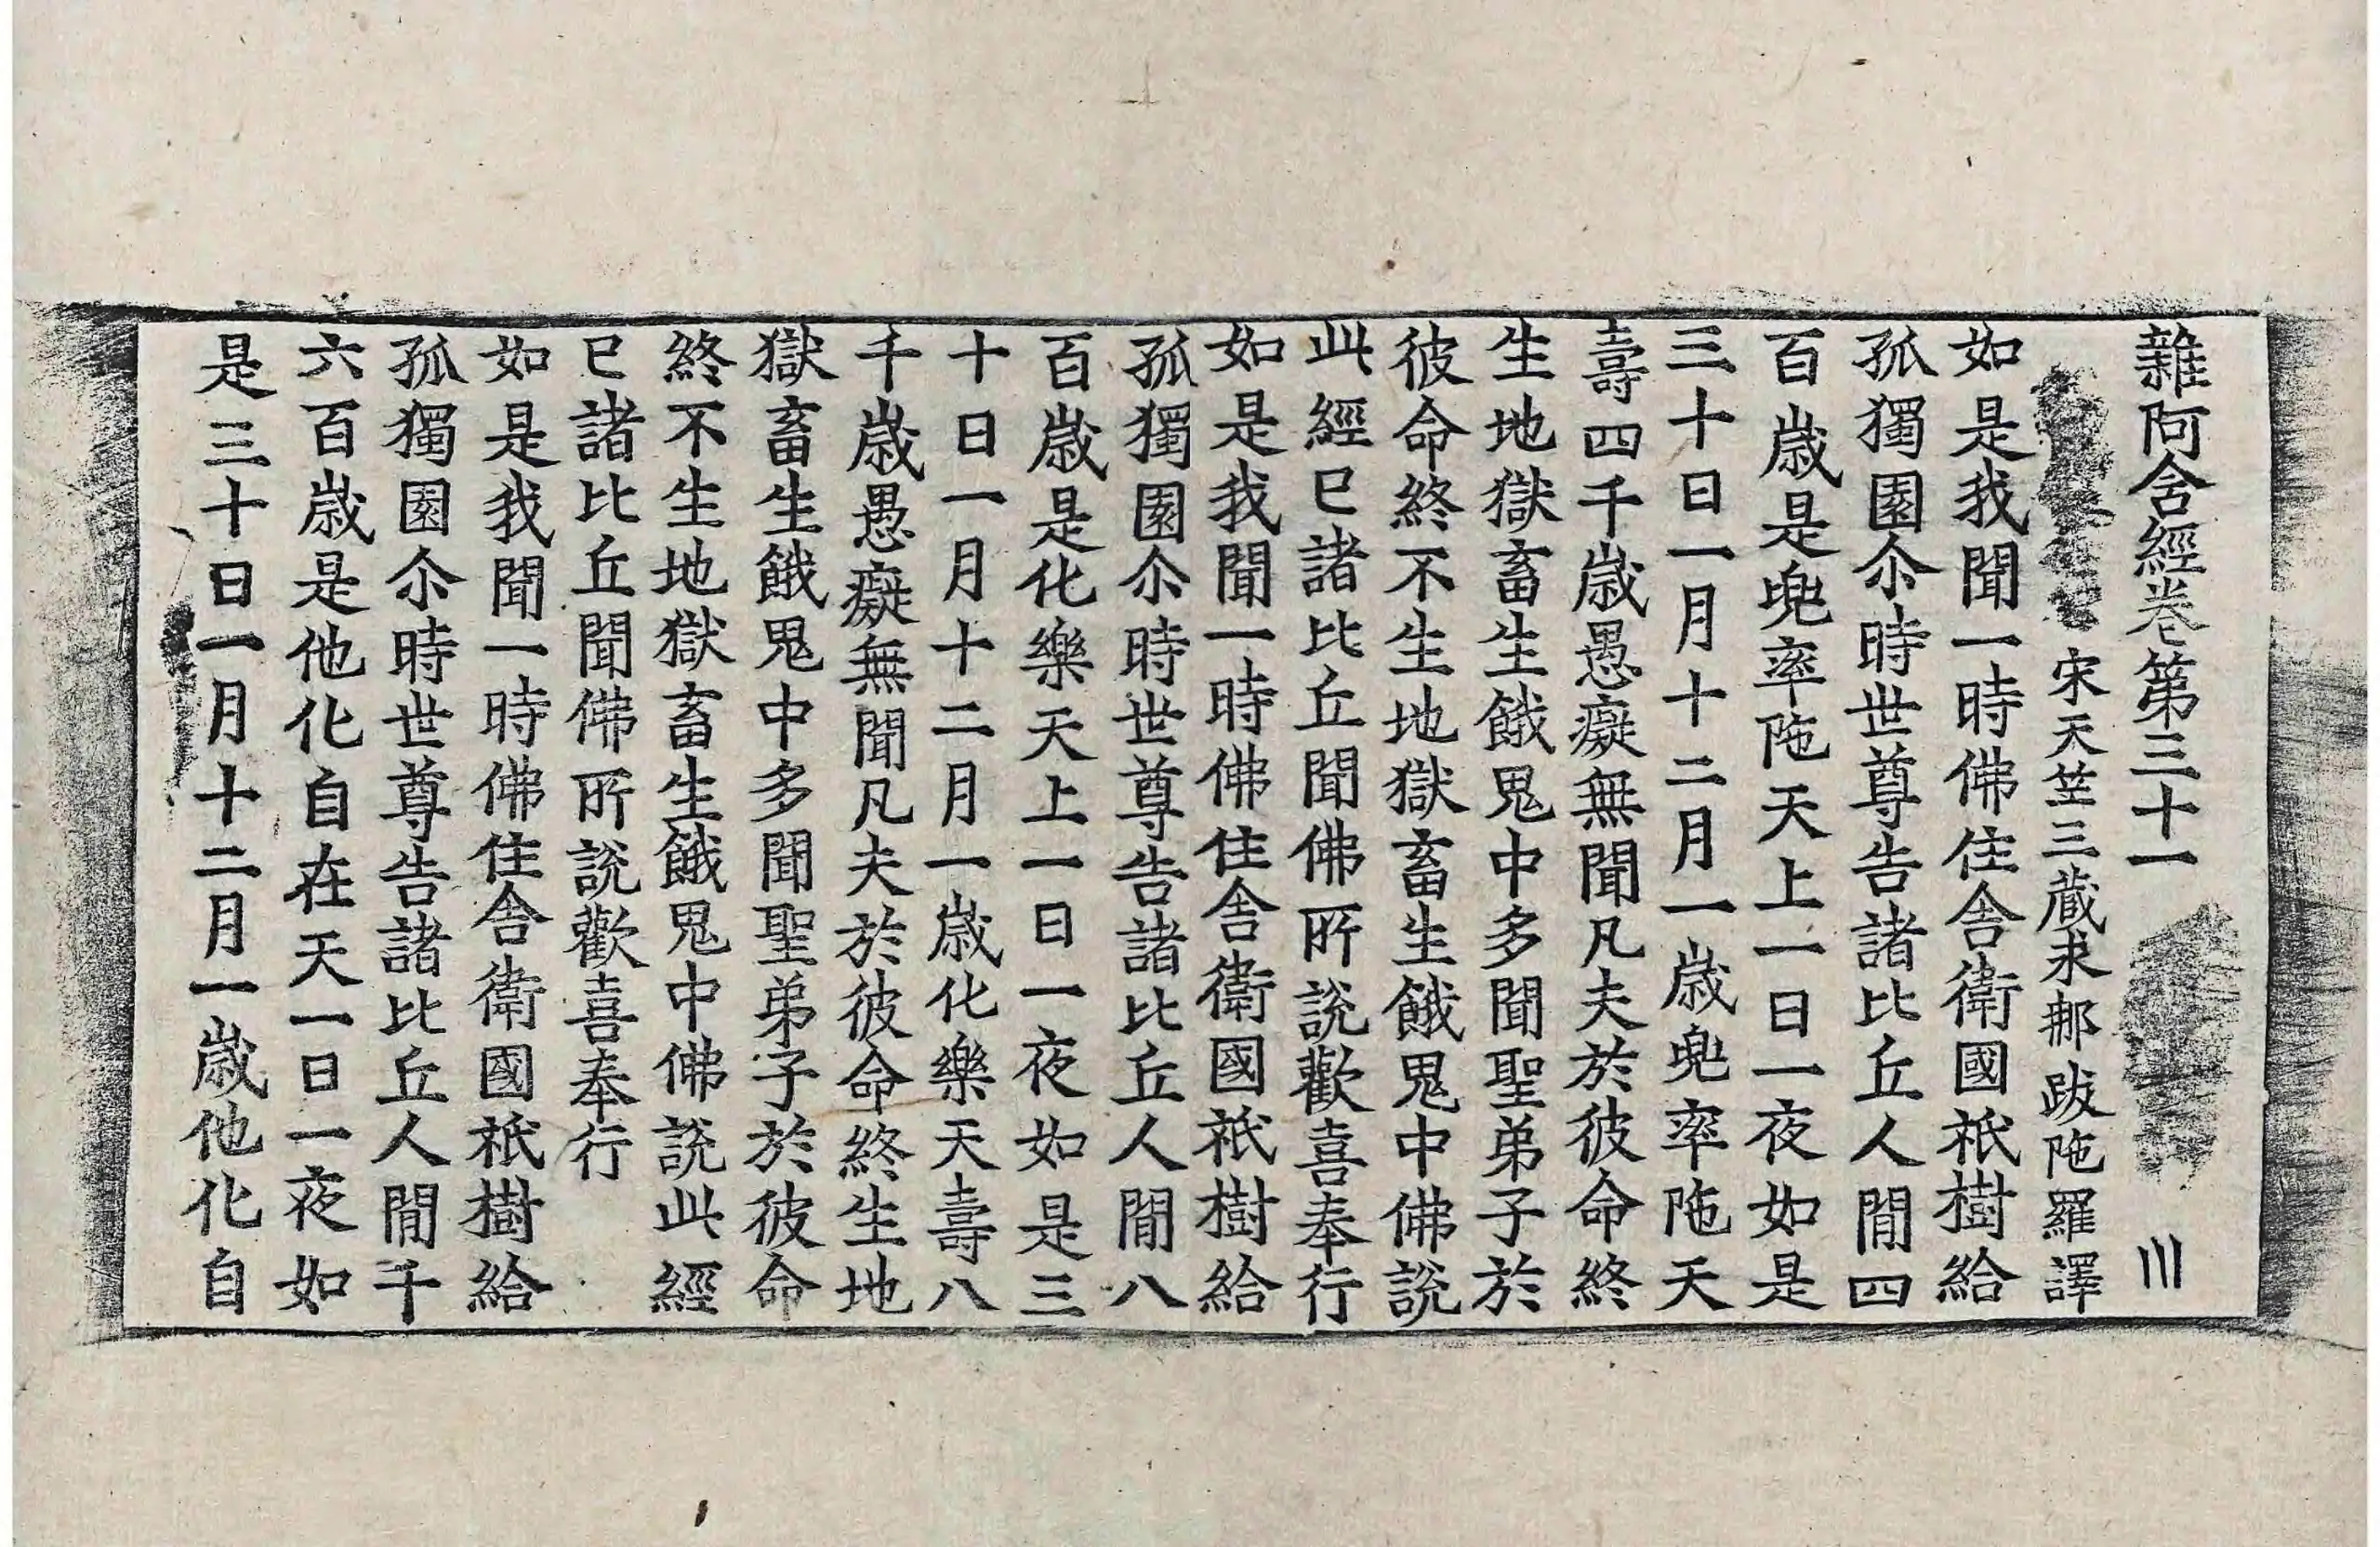 雜阿含經卷第三十一 川
宋天竺三藏求那跋陁羅譯
如是我聞一時佛住舍衛國祇樹給
孤獨園尒時世尊告諸比丘人閒四
百歲是兜率陁天上一日一夜如是
三十日一月十二月一歲兜率陁天
壽四千歲愚癡無聞凡夫於彼命終
生地獄畜生餓鬼中多聞聖弟子於
彼命終不生地獄畜生餓鬼中佛說
此經已諸比丘聞佛所說歡喜奉行
如是我聞一時佛住舍衛國祇樹給
孤獨園尒時世尊告諸比丘人閒八
百歲是化樂天上一日一夜如是三
十日一月十二月一歲化樂天壽八
千歲愚癡無聞凡夫於彼命終生地
獄畜生餓鬼中多聞聖弟子於彼命
終不生地獄畜生餓鬼中佛說此經
已諸比丘聞佛所說歡喜奉行
如是我聞一時佛住舍衛國祇樹給
孤獨園尒時世尊告諸比丘人閒千
六百歲是他化自在天一日一夜如
是三十日一月十二月一歲他化自